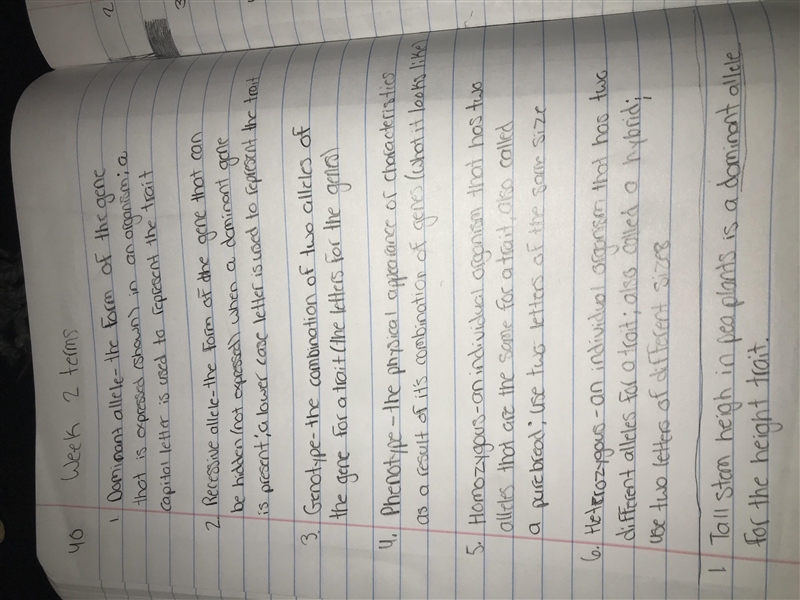 40 Week 2 terms
1. Dominant allele- the form of the gene
that is expressed (shown) in an organism; a
capital letter is used to represent the trait
2. Recessive allele- the form of the gene that can
be hidden (not expressed) when a dominant gene
is present; a lower case letter is used to represent the trait
3. Genotype- the combination of two alleles of
the gene for a trait (the letters for the genes)
4. Phenotype - the physical appearance or characteristics
as a result of its combination of genes (what it looks like)
5. Homozygous- an individual organism that has two
alleles that are the same for a trait, also called
a purebread; use two letters of the same size
6. Heterozygous - an individual organism that has two
different alleles for a trait; also called a hybrid;
use two letters of different sizes
1 Tall stem heigh in pea plants is a dominant allele
for the height trait.
2
3